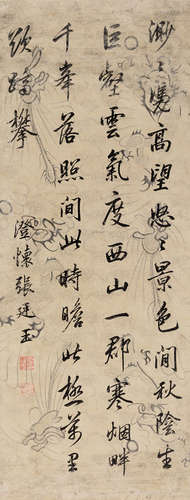 渺〻雙高望悠〻景色閒秋陰生
巨壑雲氣度西山一郡寒烟畔
千峯落照間此時瞻眺極萬里
躋攀
澄懷張廷玉